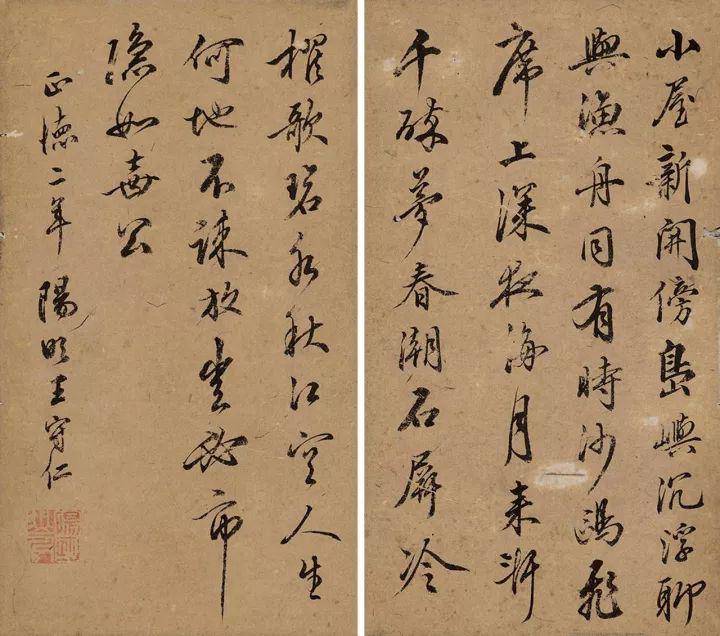 小屋新開傍島嶼沉浮聊
與漁舟同有時沙鷗飛
席上深夜海月來軒
中醉夢春潮石屏冷
櫂歌碧水秋江空人生
何地不疎放豈必市
隱如壺公
正德二年陽明王守仁